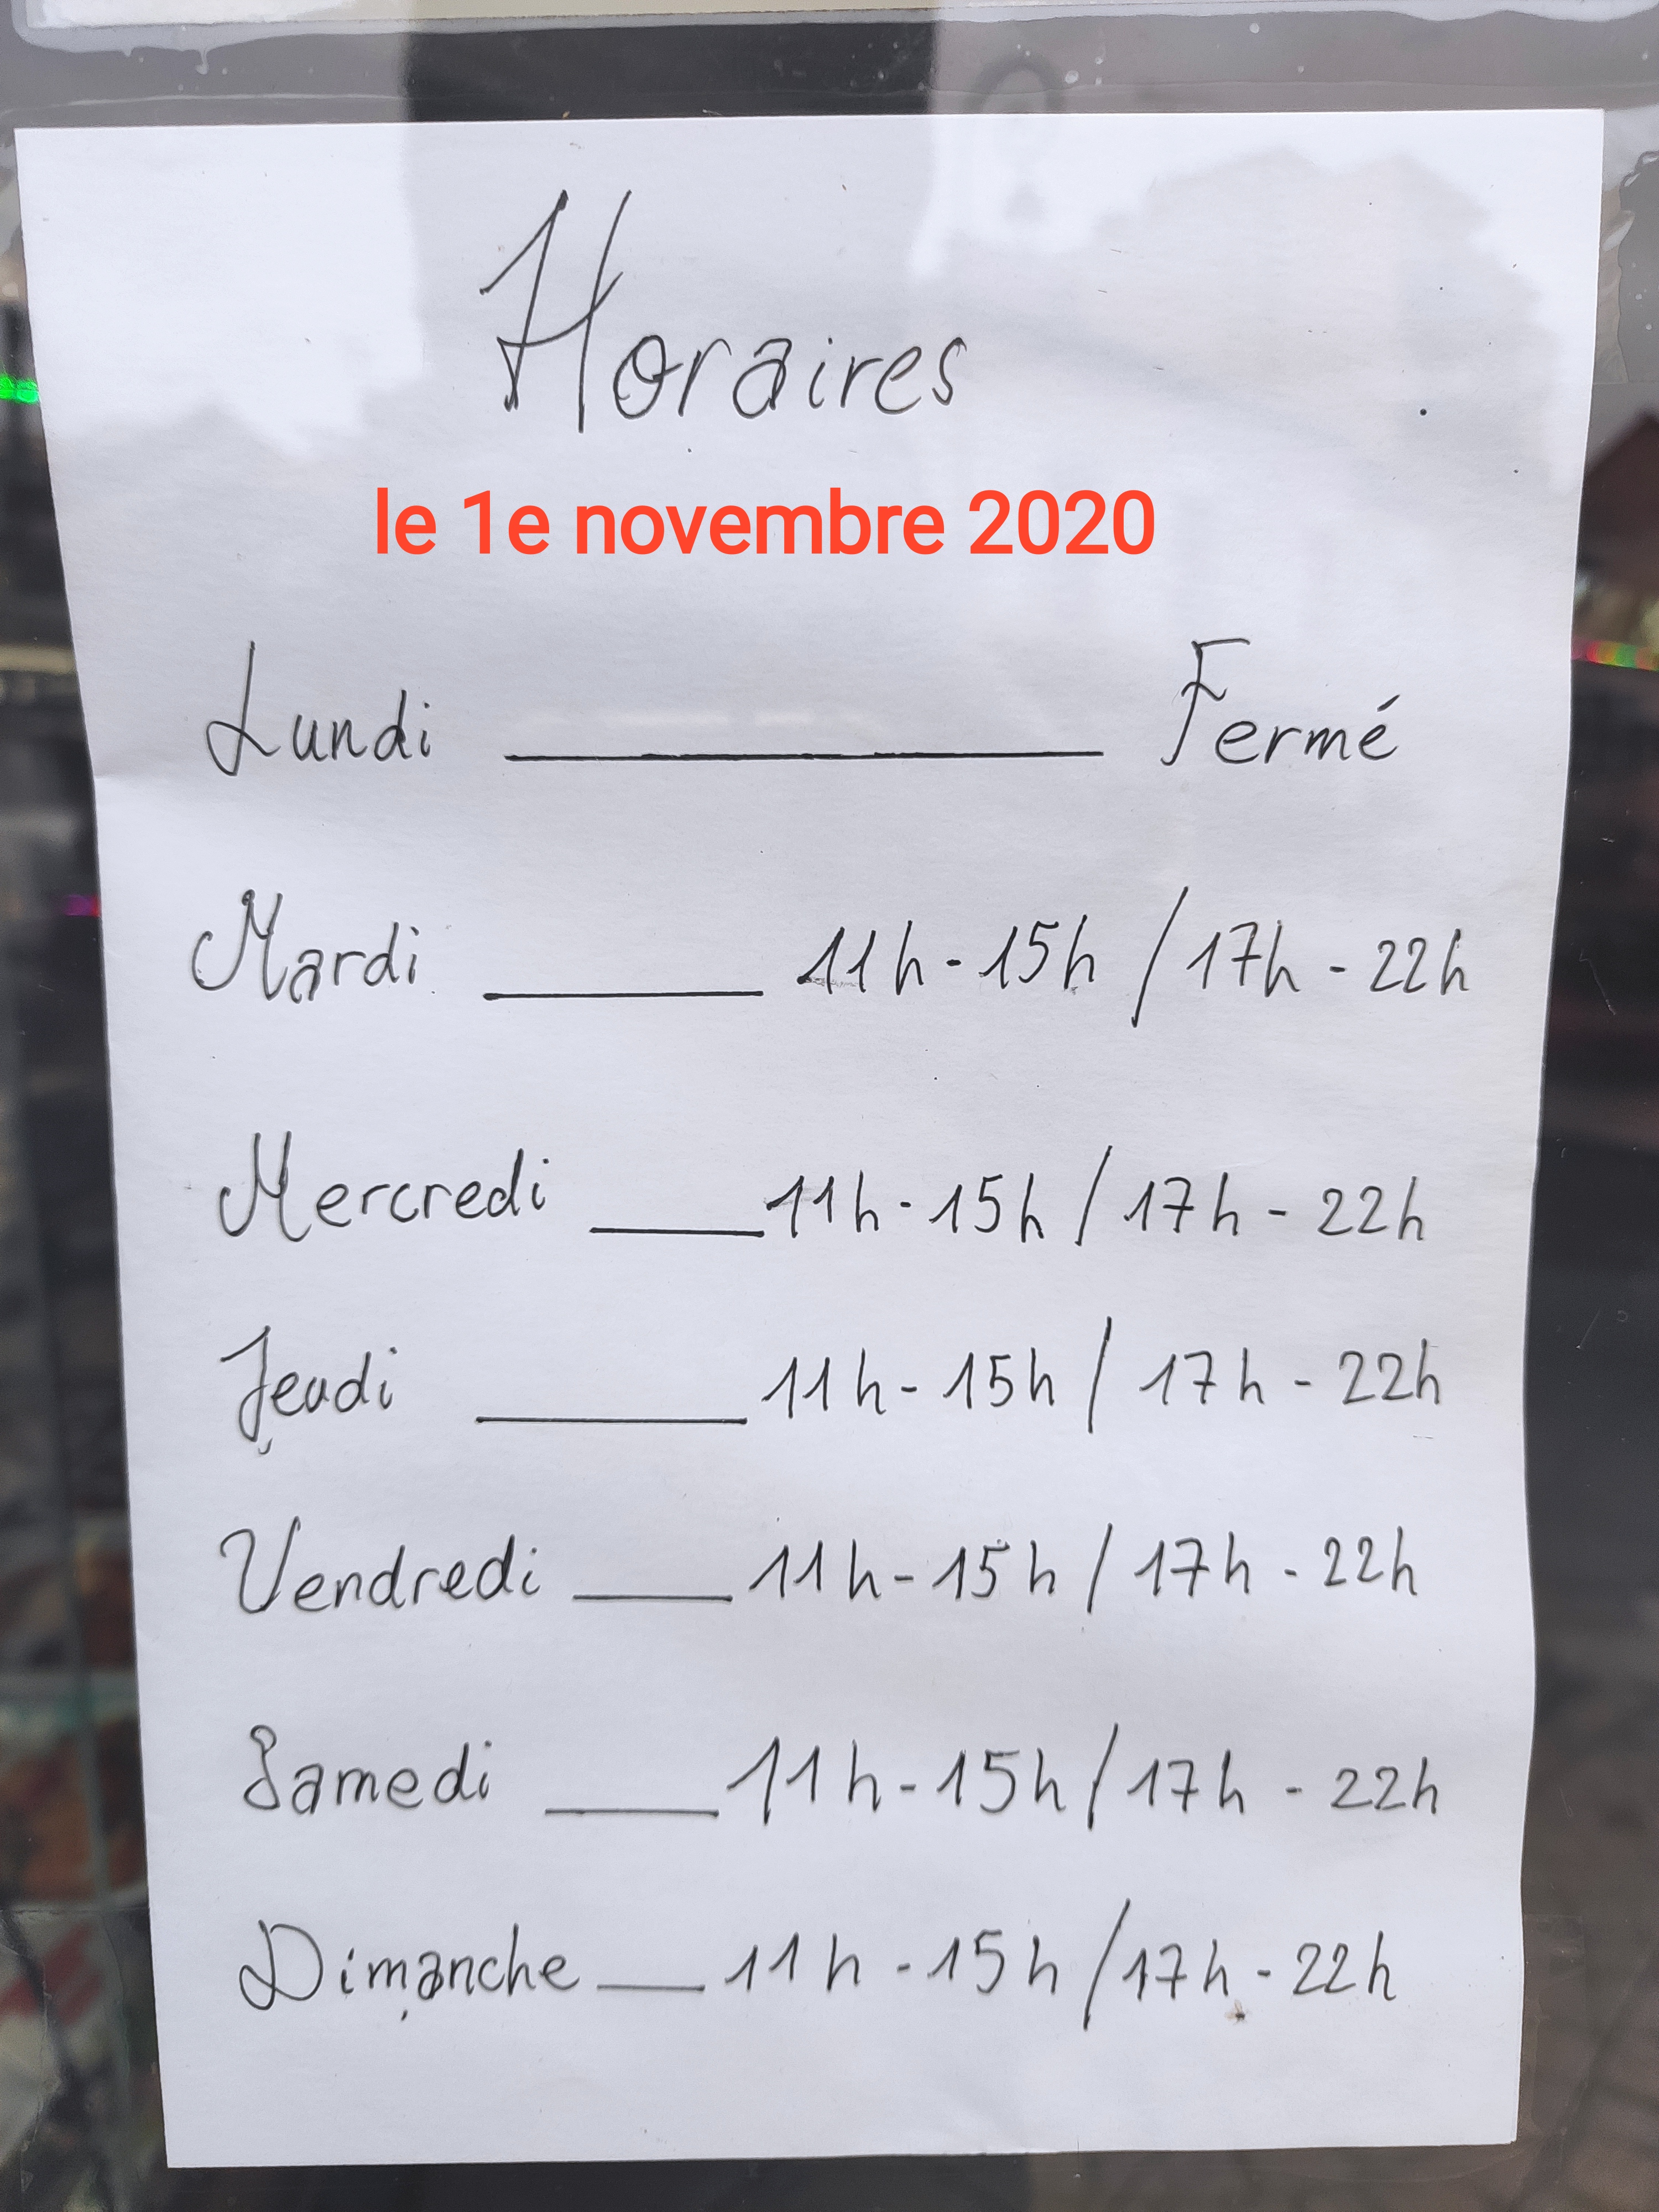 Horaires
le 1e novembre 2020
Lundi ____ Fermé
Mardi ____ 11h-15h / 17h - 22h
Mercredi ____ 11h-15h / 17h - 22h
Jeudi ____ 11h-15h / 17h - 22h
Vendredi ____ 11h-15h / 17h - 22h
Samedi ____ 11h-15h / 17h - 22h
Dimanche ____ 11h-15h / 17h - 22h